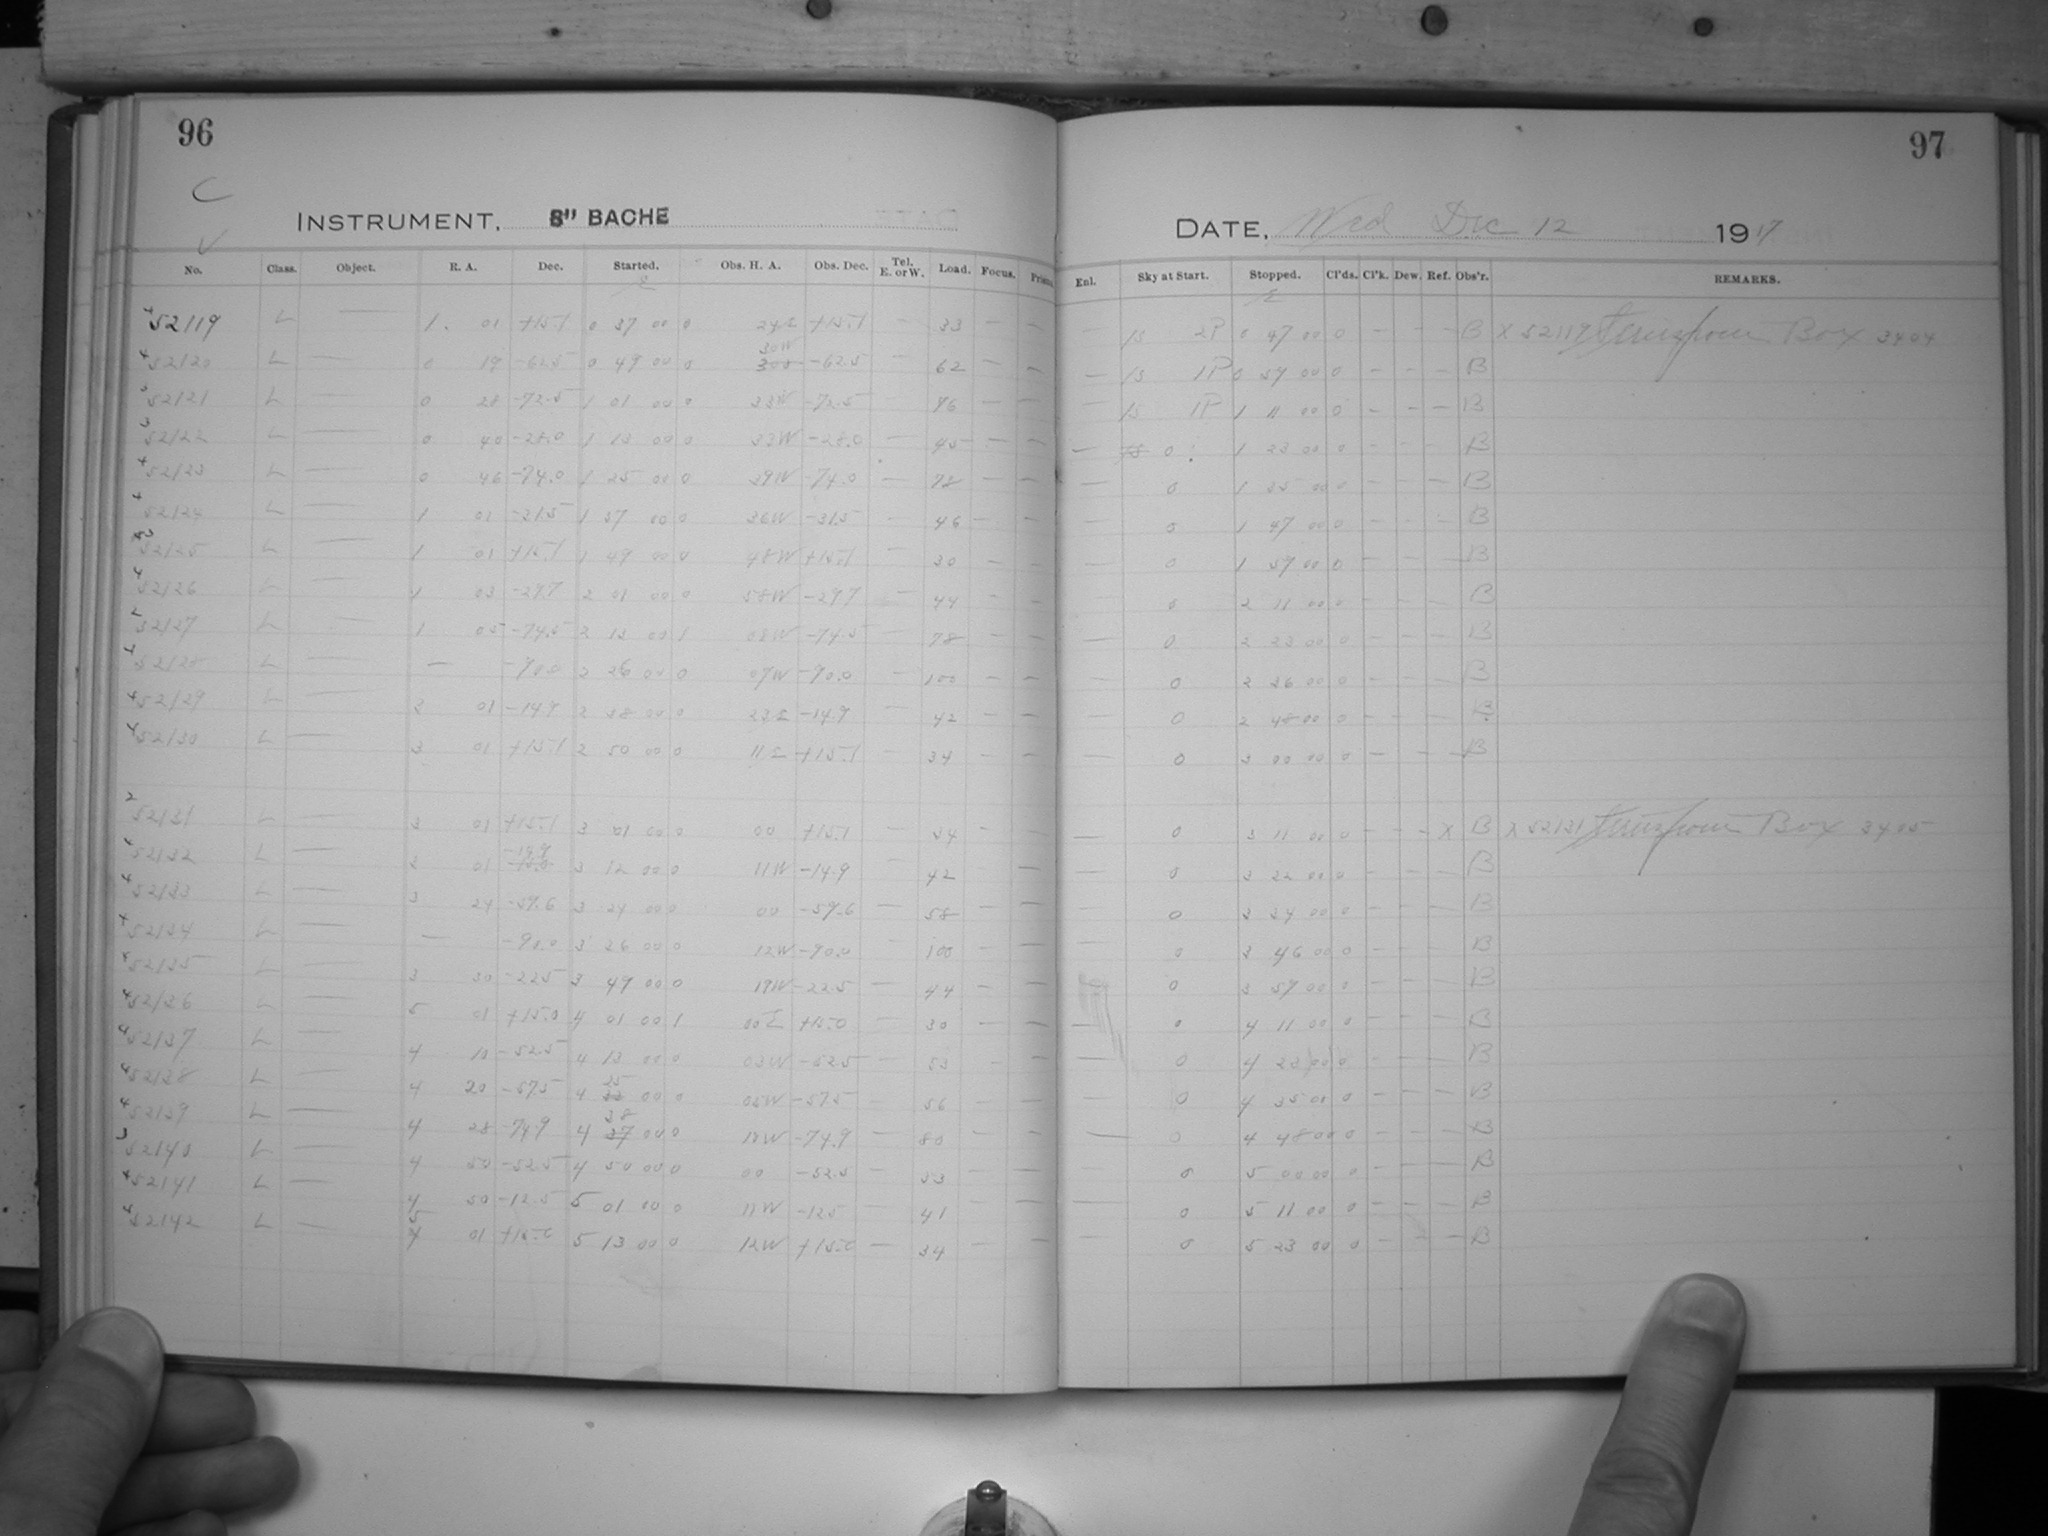 96
97
C
INSTRUMENT, 8" BACHE
DATE, Wed Dec 12 1917
No. Class. Object. R. A. Dec. Started. Obs. H. A. Obs. Dec. Tel. E. or W. Load. Focus. Prism. Enl. Sky at Start. Stopped. Cl'ds. Cl'k. Dew. Ref. Obs'r. REMARKS.
52119 L — 1 01 +15.1 0 37 00 0 24E +15.1 — 33 — — — 1s 2P 0 47 00 0 — — — B X 52119 Box 3404
52120 L — 0 19 -62.5 0 49 00 0 30W -62.5 62 — — — 1s 1P 0 59 00 0 — — — B
52121 L — 0 28 -72.5 1 01 00 0 33W -72.5 76 — — — 1s 1P 1 11 00 0 — — — B
52122 L — 0 40 -28.0 1 13 00 0 33W -28.0 — 45 — — — 0 1 23 00 0 — — — B
52123 L — 0 46 -74.0 1 25 00 0 39W -74.0 — 78 — — 0 1 35 00 0 — — — B
52124 L — 1 01 1 37 00 0 36W -31.5 — 46 — — 0 1 47 00 0 — — — B
52125 L — 1 01 +15.1 1 49 00 0 48W +15.1 — 30 — — 0 1 59 00 0 — — — B
52126 L — 1 03 -29.7 2 01 00 0 58W -29.7 — 44 — — — 0 2 11 00 0 — — — B
52127 L — 1 05 -74.5 2 13 00 1 08W -74.5 — 78 — — — 0 2 23 00 0 — — — B
52128 L — — -90.0 2 26 00 0 09W -90.0 — 100 — — — 0 2 36 00 0 — — — B
52129 L — 3 01 -14.9 2 38 00 0 23E -14.9 — 42 — — — 0 2 48 00 0 — — — B
52130 L — 3 01 +15.1 2 50 00 0 11E +15.1 — 34 — — — 0 3 00 00 0 — — — B
52131 L — 3 01 +15.1 3 01 00 0 00 +15.1 — 34 — — — 0 3 11 00 0 — — — X B X 52131 Box 3405
52132 L — 3 01 -14.9 3 12 00 0 11W -14.9 — 42 — — — 0 3 22 00 0 — — — B
52133 L — 3 24 -59.6 3 24 00 0 00 -59.6 — 58 — — — 0 3 34 00 0 — — — B
52134 L — — -90.0 3 36 00 0 12W -90.0 — 100 — — — 0 3 46 00 0 — — — B
52135 L — 3 30 -22.5 3 49 00 0 19W -22.5 — 44 — — 0 3 59 00 0 — — — B
52136 L — 5 01 +15.0 4 01 00 1 00E +15.0 — 30 — — — 0 4 11 00 0 — — — B
52137 L — 4 10 -52.5 4 13 00 0 03W -52.5 — 53 — — — 0 4 23 00 0 — — — B
52138 L — 4 20 -57.5 4 25 00 0 05W -57.5 — 56 — — — 0 4 35 00 0 — — — B
52139 L — 4 28 -74.9 4 38 00 0 10W -74.9 — 80 — — — 0 4 48 00 0 — — — B
52140 L — 4 50 -52.5 4 50 00 0 00 -52.5 — 53 — — 0 5 00 00 0 — — — B
52141 L — 4 50 -12.5 5 01 00 0 11W -12.5 — 41 — — — 0 5 11 00 0 — — — B
52142 L — 5 01 +15.0 5 13 00 0 12W +15.0 — 34 — — — 0 5 23 00 0 — — — B